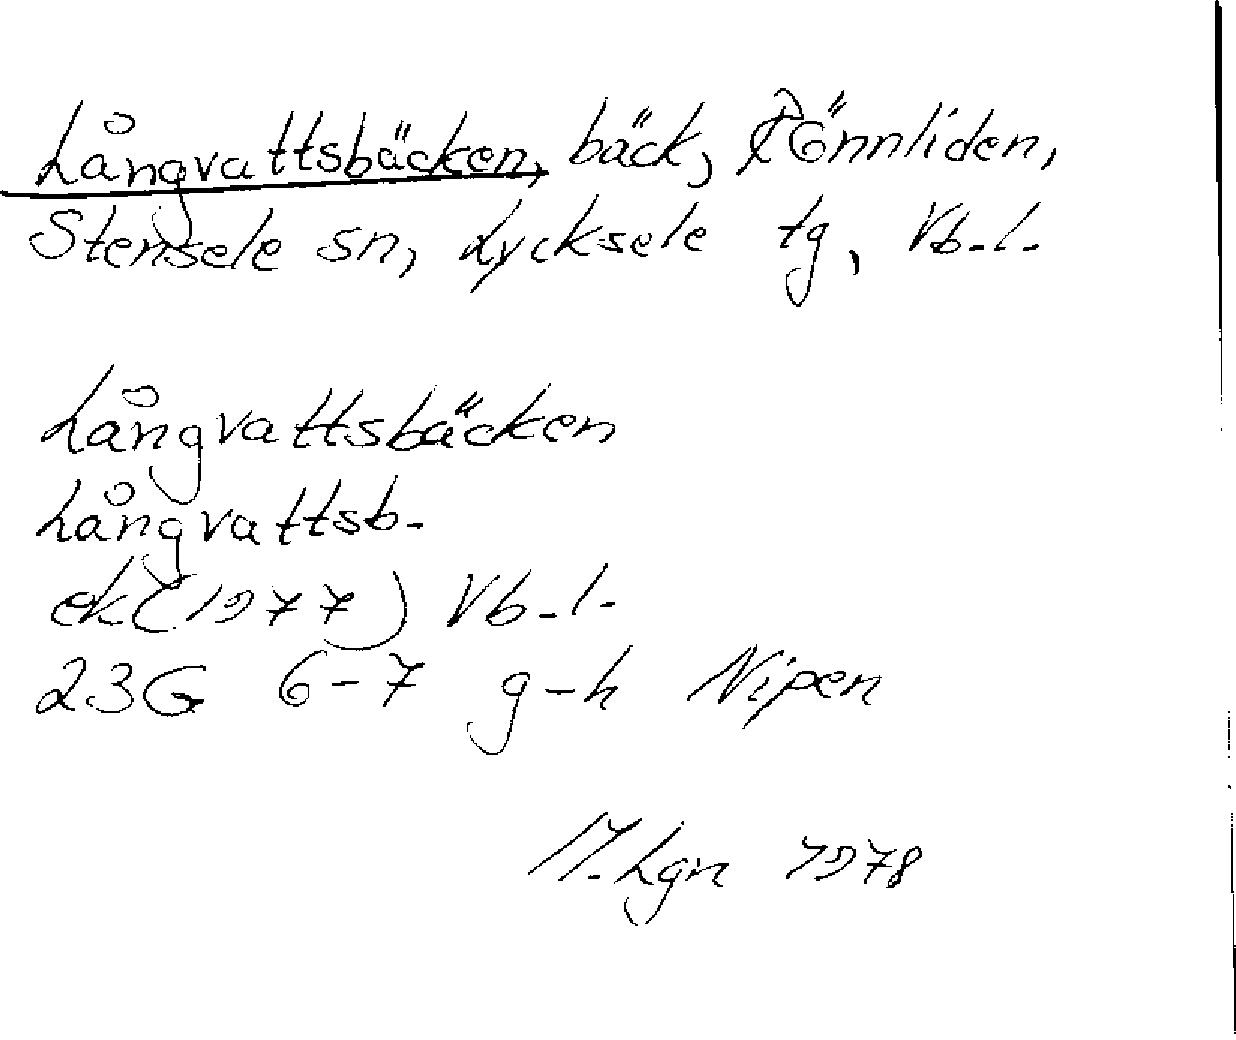 Långvattsbäcken, bäck, Rönnliden,
Stensele sn, Lycksele tg, Vb.l.
Långvattsbäcken
Långvattsb.
ek (1977) Vb.l.
23G 6-7 g-h Nipen
M.Lgn 1978